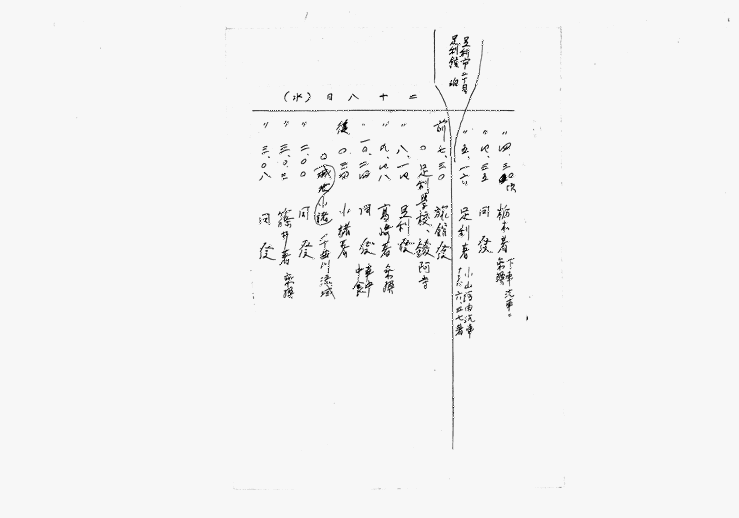 〃 四、三〇頃 栃木着 下車 汽車。
〃 四、三五 同 発
〃 五、一六 足利着 小山経由汽車
六、五七着
足利市二十日
足利館 泊
二十八日 (水)
前 七、三〇 旅館発
〇 足利學校、鑁阿寺
〃 八、一四 足利発
〃 九、四八 高崎着 乗換
〃 一〇、二四 同 発 車中
中食
後 〇、三四 小諸着
〇 城址 小諸 千曲川流域
〃 二、〇〇 同 発
〃 三、〇三 篠ノ井着 乗換
〃 三、〇八 同 発